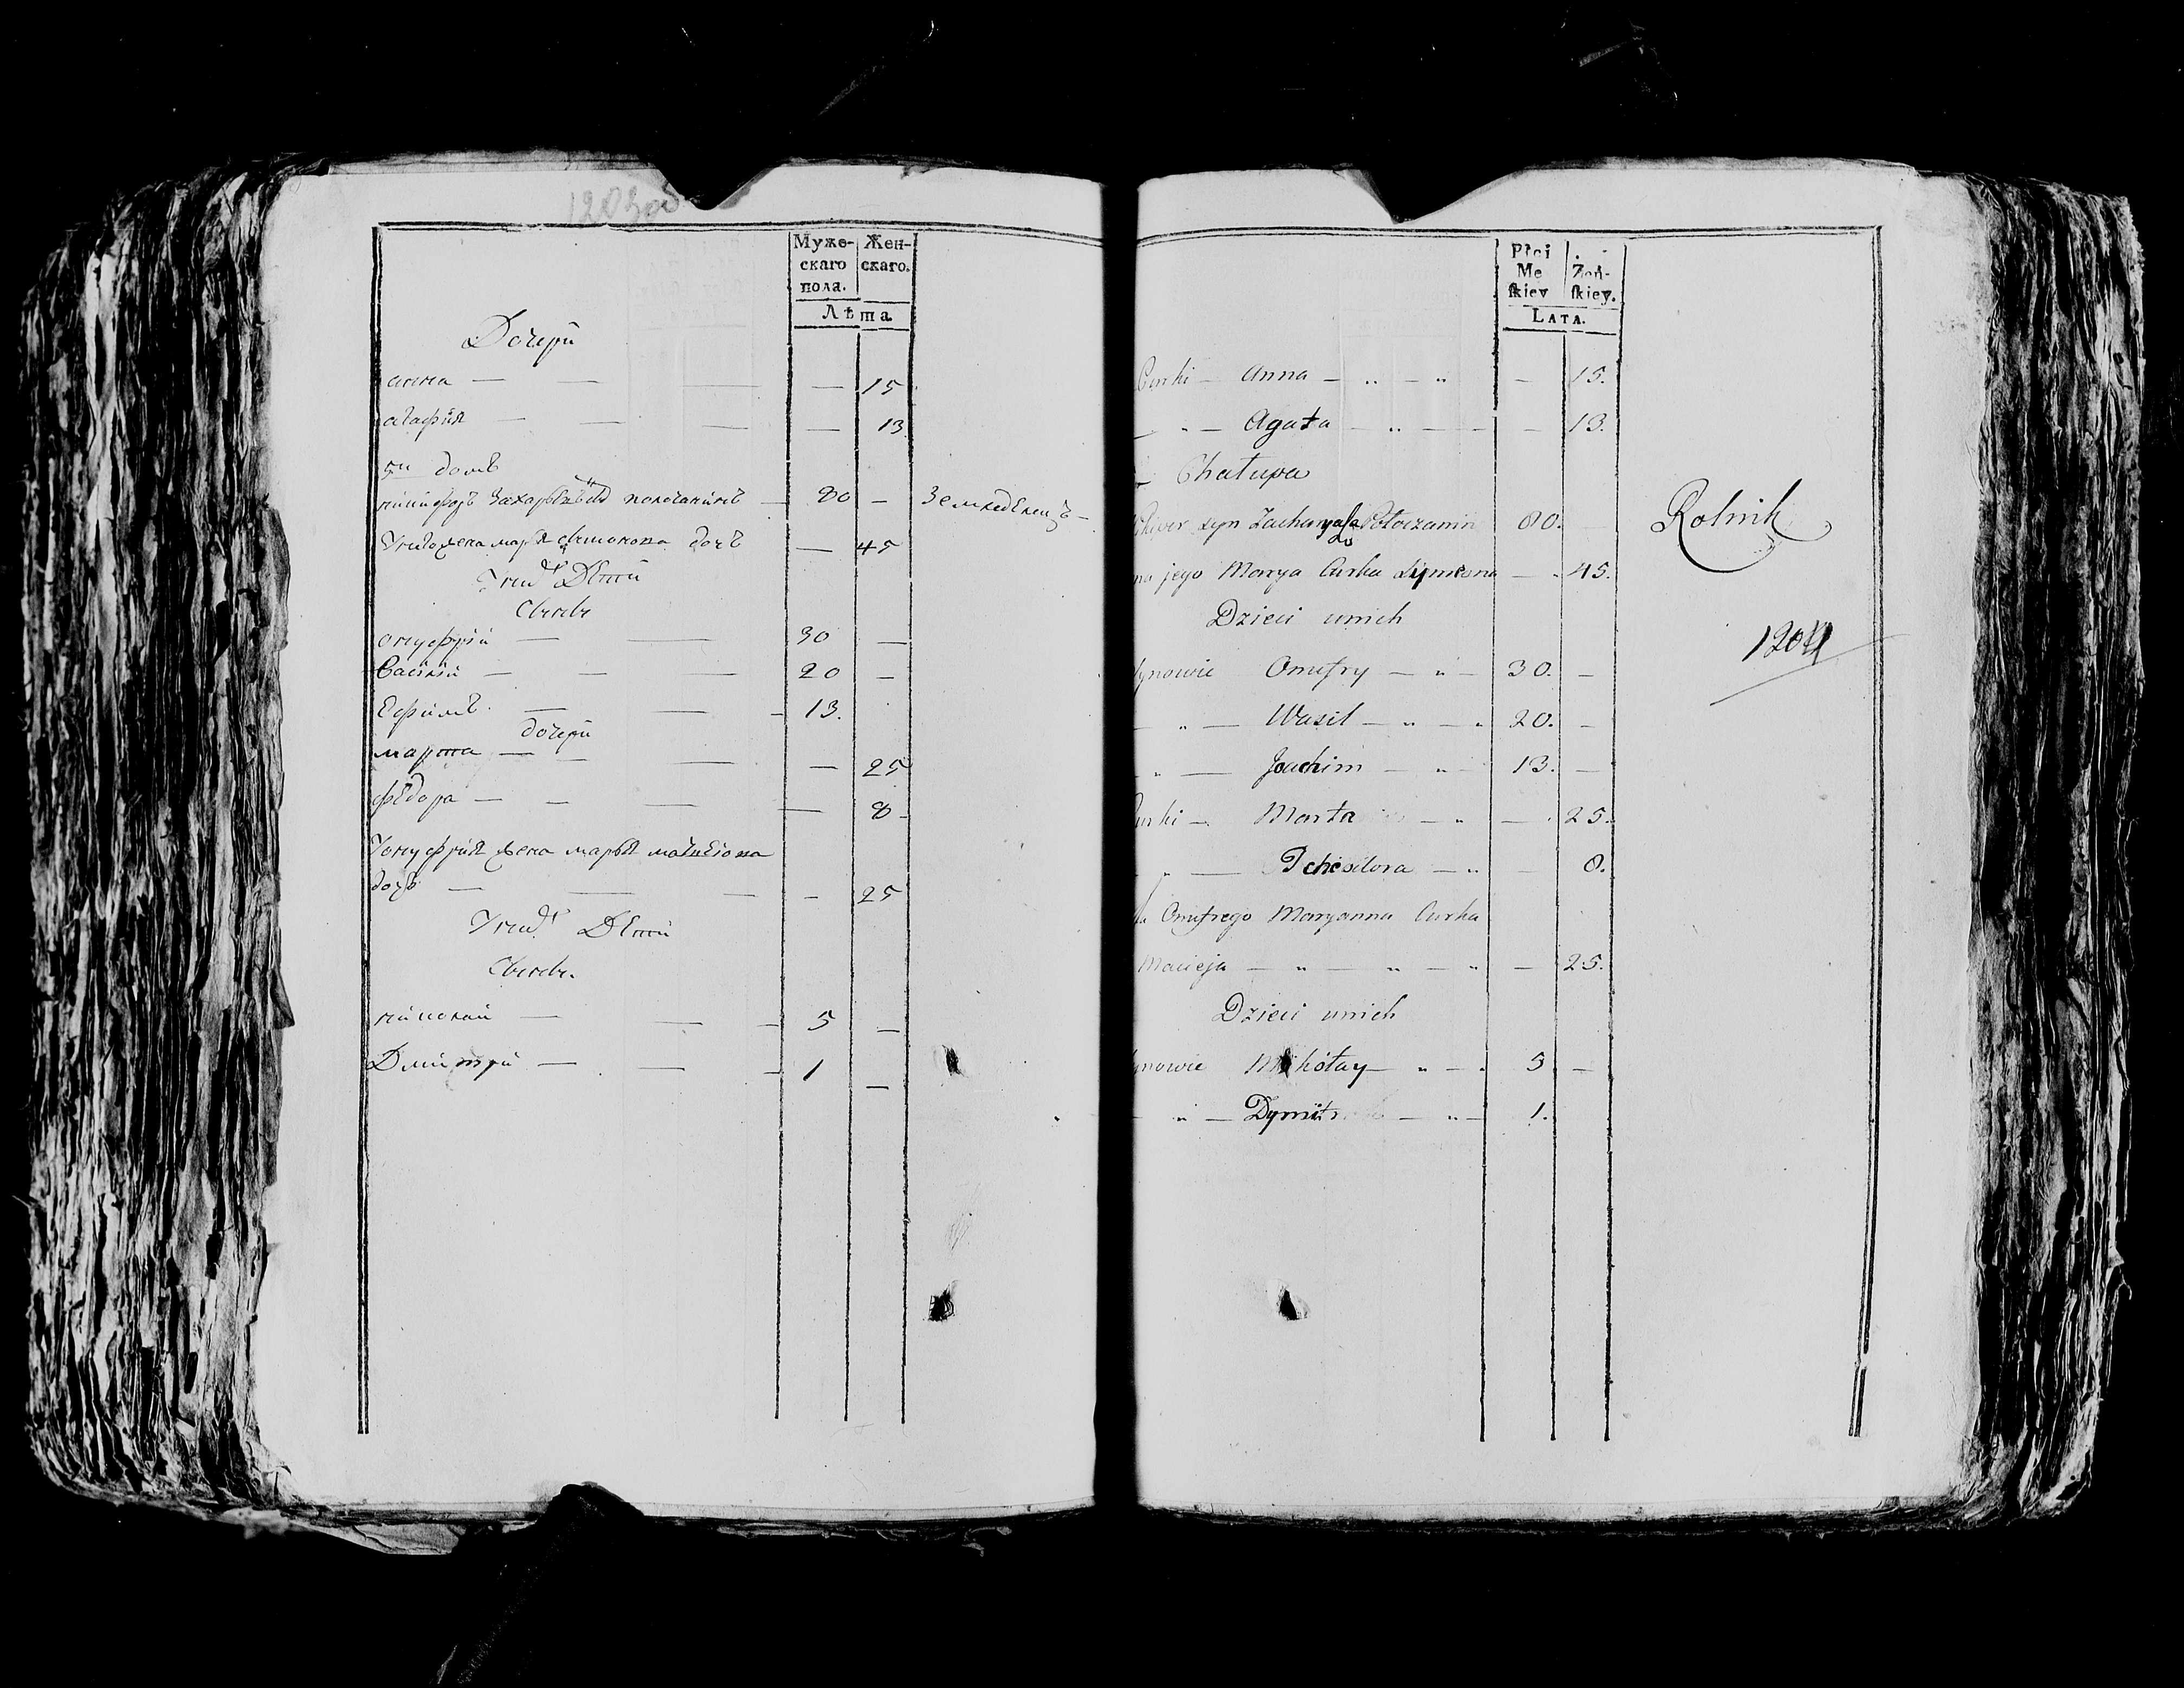 120300
Муже-
скаго
пола.
Жен-
скаго.
Лѣта
Дочери
анна — — — — 15
агафия — — — — 13
5й домъ
никифоръ Захарьевъ сынъ полочанинъ — 80 — Земледѣлецъ —
Унего жена марья симонова дочь — 45
Унихъ Дѣти
Сыны
онуфрій — — 30 —
Василій — — — 20 —
Ефимъ — — — 13.
дочери
марта — — — — 25
фѣдора — — — — 8
Уонуфрия жена марья матвѣева
дочь — — — — 25
Унихъ Дѣти
Сыны
николай — — — 5 —
Дмитри — — — 1 —
Płci
Me
ſkiev
Żeń-
ſkiey.
LATA.
Curki — Anna — „ — „ — 15.
— „ — Agata — „ — — — 13.
Chałupa
syn Zacharyasza Połoczanin 80. — Rolnik
na jego Marya Curka Symona — 45.
Dzieci unich
1204
ynowie Onufry — „ — 30. —
— „ — Wasil — „ — „ 20. —
„ — Joachim — „ — 13. —
urki — Marta — „ — 25.
„ — Teodora — „ — 8.
Onufrego Maryanna Curka
Macieja — „ — „ — „ — 25.
Dzieci unich
ynowie Mikołay — „ — „ 5 —
„ — Dymitr — „ — 1.